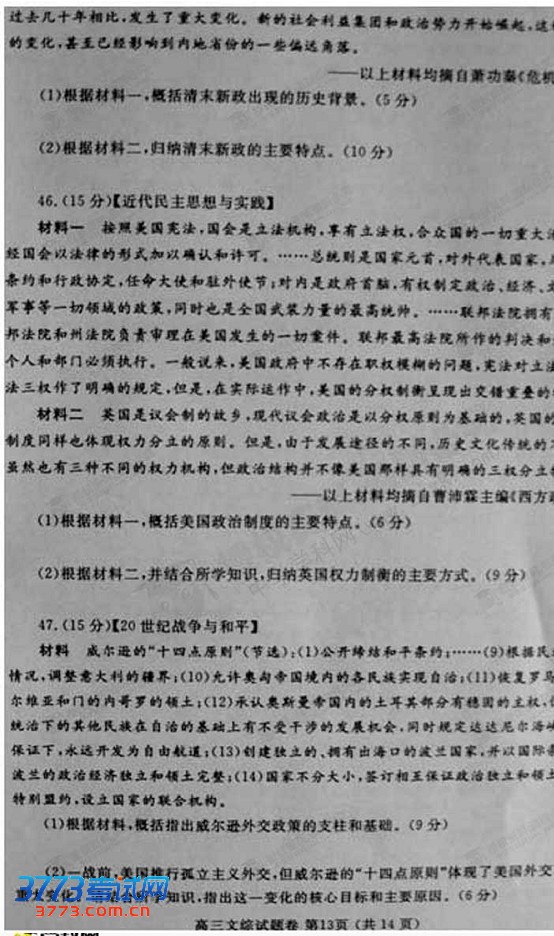 过去几十年相比,发生了重大变化。新的社会利益集团和政治势力开始崛起,这
的变化,甚至已经影响到内地省份的一些偏远角落。
——以上材料均摘自萧功秦《危机
(1)根据材料一,概括清末新政出现的历史背景。(5分)
(2)根据材料二,归纳清末新政的主要特点。(10分)
46.(15分)【近代民主思想与实践】
材料一 按照美国宪法,国会是立法机构,享有立法权,合众国的一切重大
经国会以法律的形式加以确认和许可。……总统则是国家元首,对外代表国家,
条约和行政协定,任命大使和驻外使节;对内是政府首脑,有权制定政治、经济、
军事等一切领域的政策,同时也是全国武装力量的最高统帅。……联邦法院拥有
邦法院和州法院负责审理在美国发生的一切案件。联邦最高法院所作的判决和
个人和部门必须执行。一般说来,美国政府中不存在职权模糊的问题,宪法对立
法三权作了明确的规定,但是,在实际运作中,美国的分权制衡呈现出交错重叠的
材料二 英国是议会制的故乡,现代议会政治是以分权原则为基础的,英国的
制度同样也体现权力分立的原则。但是,由于发展途径的不同,历史文化传统的
虽然也有三种不同的权力机构,但政治结构并不像美国那样具有明确的三权分立
——以上材料均摘自曹沛霖主编《西方
(1)根据材料一,概括美国政治制度的主要特点。(6分)
(2)根据材料二,并结合所学知识,归纳英国权力制衡的主要方式。(9分)
47.(15分)【20世纪战争与和平】
材料 威尔逊的“十四点原则”(节选):(1)公开缔结和平条约;……(9)根据民
情况,调整意大利的疆界;(10)允许奥匈帝国境内的各民族实现自治;(11)恢复罗马
尔维亚和门的内哥罗的领土;(12)承认奥斯曼帝国内的土耳其部分有稳固的主权,
统治下的其他民族在自治的基础上有不受干涉的发展机会,同时规定达达尼尔海
保证下,永远开发为自由航道;(13)创建独立的、拥有出海口的波兰国家,并以国际
波兰的政治经济独立和领土完整;(14)国家不分大小,签订相互保证政治独立和领土
特别盟约,设立国家的联合机构。
(1)根据材料,概括指出威尔逊外交政策的支柱和基础。(9分)
(2)一战前,美国推行孤立主义外交,但威尔逊的“十四点原则”体现了美国外交
重大变化。 结合所学知识,指出这一变化的核心目标和主要原因。(6分)
3773考试网
3773.com.cn
高三文综试题卷 第13页(共14页)